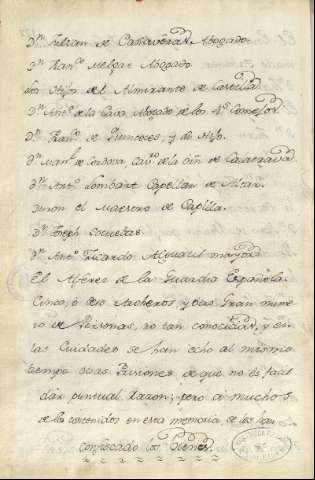 Dn. Beltran de Cañaveral Abogado
Dn. Franco. Melgar Abogado
Dos Hijos del Almirante de Castilla
Dn. Anto. de la Cava, Abogado de los Rs. Consejos
Dn. Franco. de Quincoces, y su Hijo.
Dn. Manl. de Cordova Cavo. de la Orn. de Calatrava
Dn. Anto. Lombart Capellan de Altar
Duron el Maestro de Capilla
Dn. Joseph
Dn. Anto. Ricardo Alguacil mayor
El Alferez de la Guardia Española
Cinco, ò seis Archeros, y otro Gran nume
ro de Personas, no tan conocidas, y en
las Ciudades se han echo al mismo
tiempo otras Prisiones de que no es facil
dàr puntual razon; pero a muchos
de los contenidos en esta memoria se les han
confiscado los Bienes.